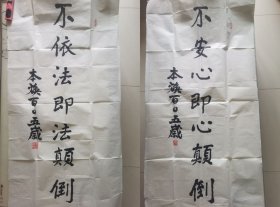 不依法即法顛倒
本煥百〇五歲
不安心即心顛倒
本煥百〇五歲